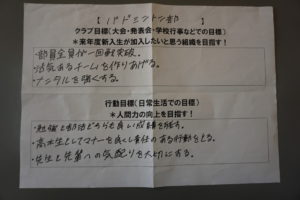 【バドミントン部】
クラブ目標(大会・発表会・学校行事などでの目標)
＊来年度新入生が加入したいと思う組織を目指す！
・部員全員が一回戦突破。
・活気あるチームを作りあげる。
・メンタルを強くする。
行動目標(日常生活での目標)
＊人間力の向上を目指す！
・勉強と部活どちらも良い成績を残す。
・高水生としてマナーを良くし責任のある行動をとる。
・先生と先輩への気配りを大切にする。